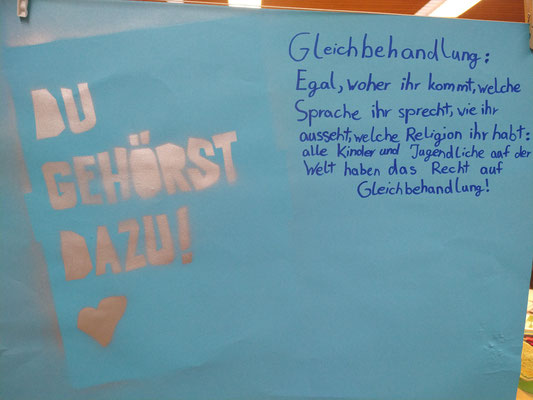 DU
GEHÖRST
DAZU!
Gleichbehandlung:
Egal, woher ihr kommt, welche
Sprache ihr sprecht, wie ihr
ausseht, welche Religion ihr habt:
alle Kinder und Jugendliche auf der
Welt haben das Recht auf
Gleichbehandlung!